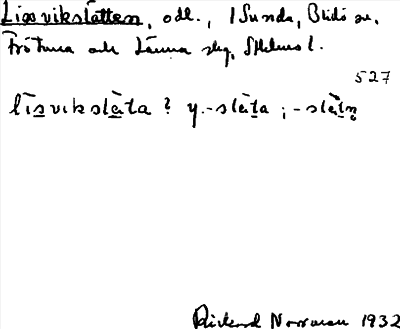 Lisvikslätten, odl., i Sunda, Blidö sn.
Frötuna och Länna skg, Sthlms l.
527
lìsvikslèta ? y. -slèta ; -slètn̥
Rickard Norrman 1932